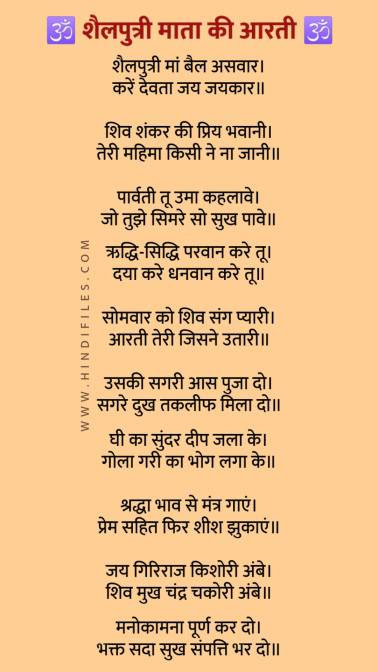 🕉 शैलपुत्री माता की आरती 🕉
शैलपुत्री मां बैल असवार।
करें देवता जय जयकार॥
शिव शंकर की प्रिय भवानी।
तेरी महिमा किसी ने ना जानी॥
पार्वती तू उमा कहलावे।
जो तुझे सिमरे सो सुख पावे॥
ऋद्धि-सिद्धि परवान करे तू।
दया करे धनवान करे तू॥
सोमवार को शिव संग प्यारी।
आरती तेरी जिसने उतारी॥
उसकी सगरी आस पुजा दो।
सगरे दुख तकलीफ मिला दो॥
घी का सुंदर दीप जला के।
गोला गरी का भोग लगा के॥
श्रद्धा भाव से मंत्र गाएं।
प्रेम सहित फिर शीश झुकाएं॥
जय गिरिराज किशोरी अंबे।
शिव मुख चंद्र चकोरी अंबे॥
मनोकामना पूर्ण कर दो।
भक्त सदा सुख संपत्ति भर दो॥
WWW.HINDIFILES.COM